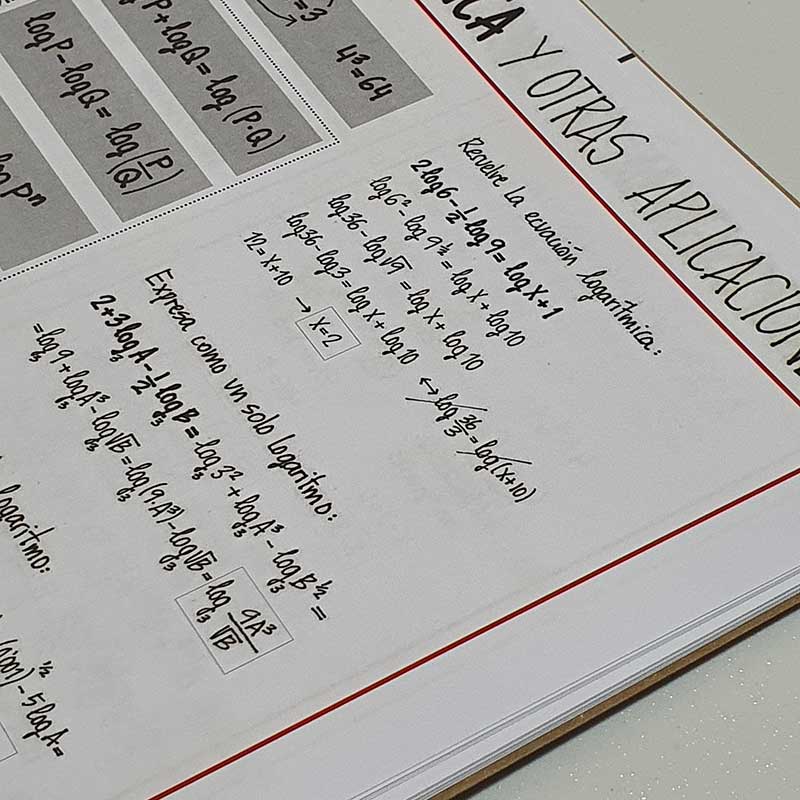 ICA Y OTRAS APLICACION
=3
4³=64
P+logQ=log(P·Q)
logP-logQ=log(P/Q)
log Pⁿ
Resuelve la ecuación logarítmica:
2log6-½log9=logX+1
log6²-log9^½=logX+log10
log36-log√9=logX+log10
log36-log3=logX+log10 ↔ log 36/3=log(X+10)
12=X+10 → X=2
Expresa como un solo logaritmo:
2+3log₃A-½log₃B=log₃3²+log₃A³-log₃B^½=
=log₃9+log₃A³-log₃√B=log₃(9·A³)-log₃√B=log₃ 9A³/√B
logaritmo:
^½-5logA=